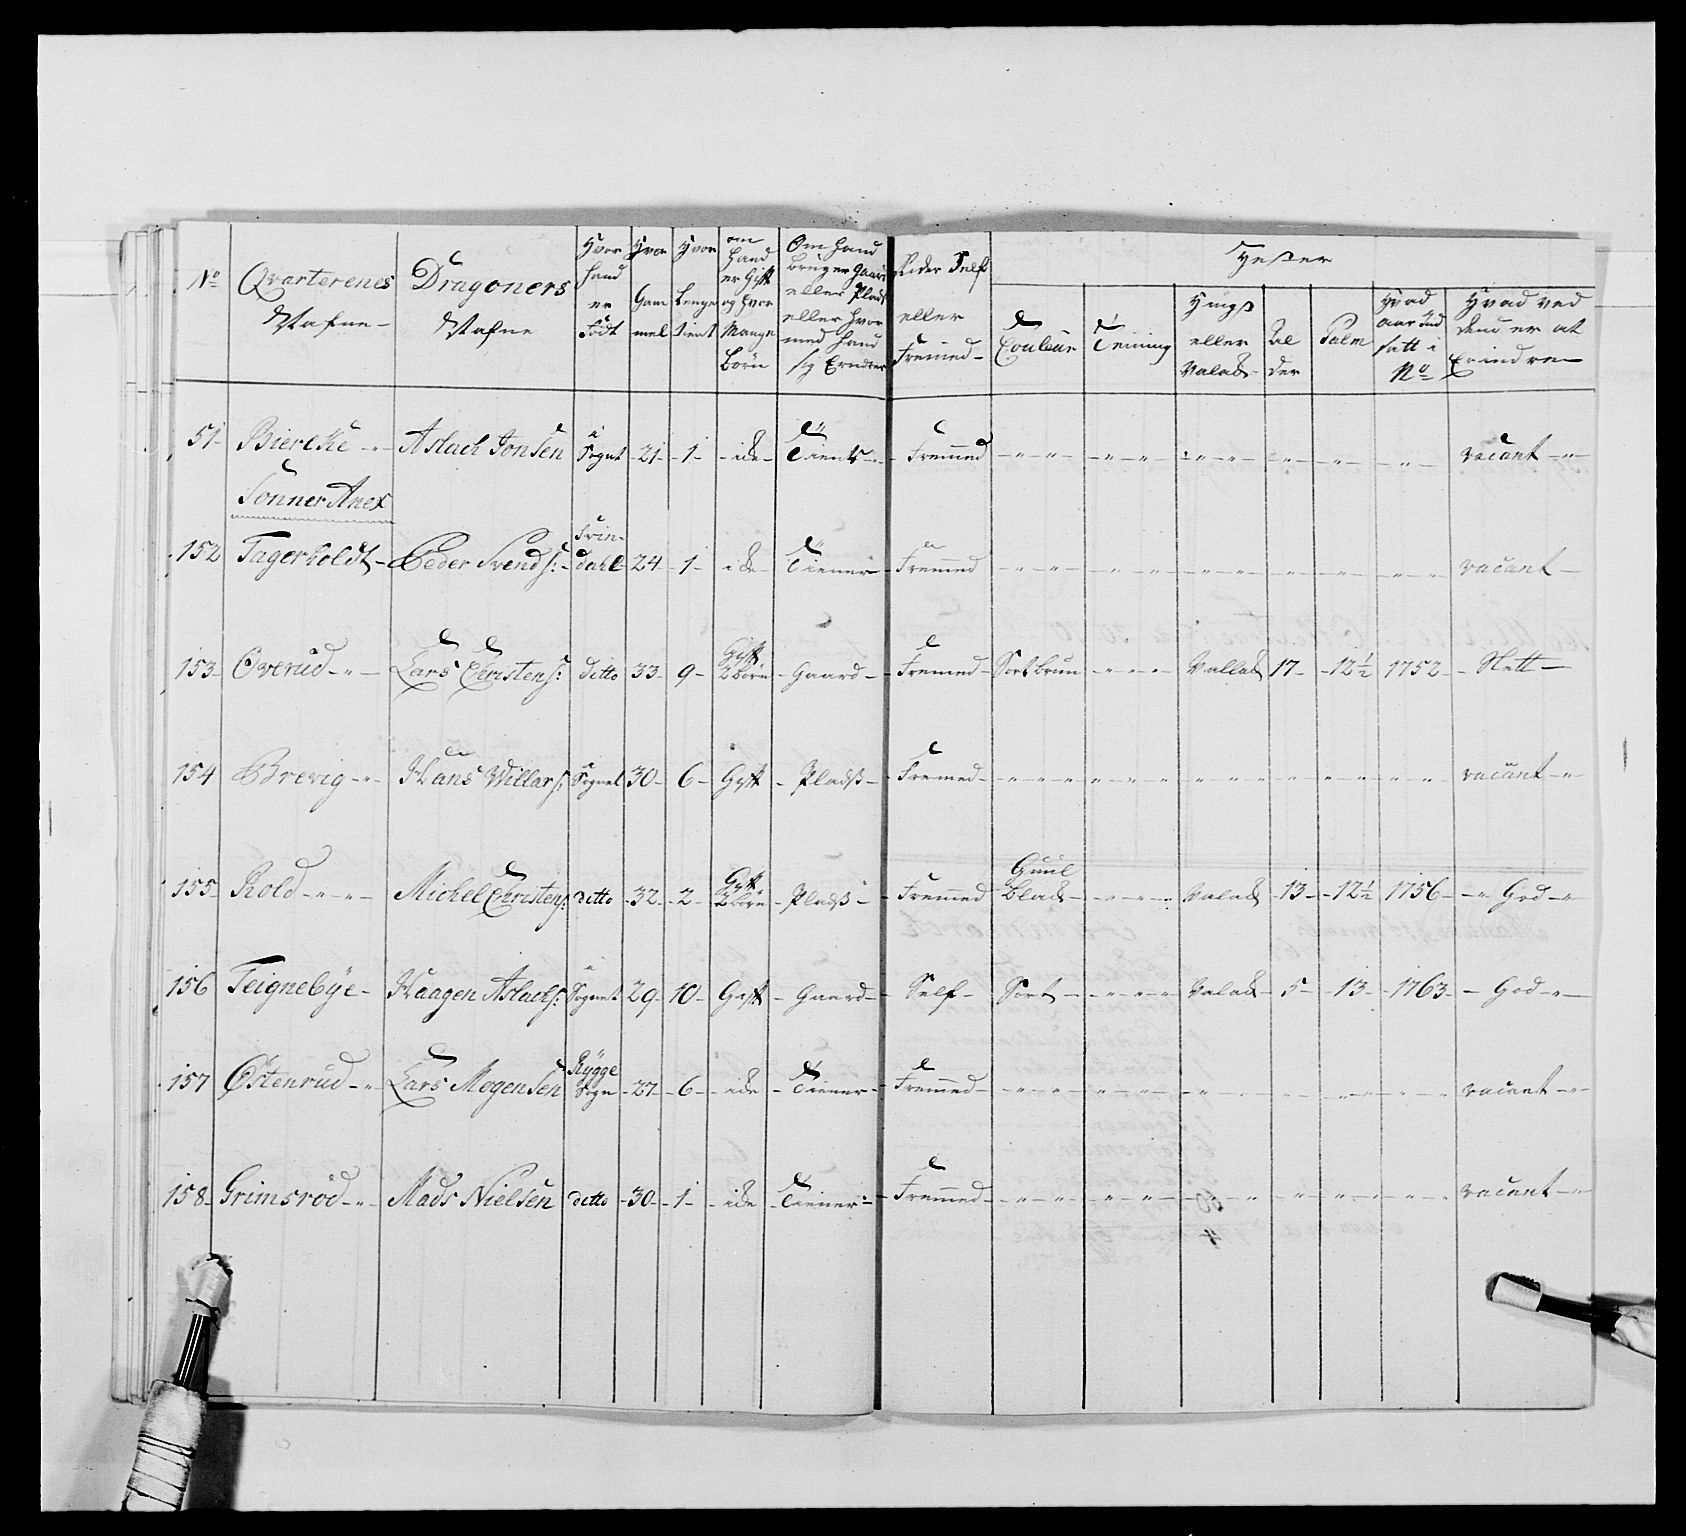 No Qvarterenes Nafne Dragoners Nafne Hvor hand er Födt Hvor Gammel Hvor Lenge tient om hand er Gift og hvor Mange Börn Om hand bruger Gaard eller Plads eller hvormed hand sig Erndrer Rider Self eller Fremmed Hester
Couleur Teining Hingst eller Valak Alder Palm Hvad aar Indsatt i No Hvad ved dend er at Erindre
51 Biercke Aslach Jonsen i Sognt 21 1 ide Tient Fremmed vacant
Sonner Anex
152 Fagerholdt Peder Svends: Svindahl 24 1 ide Tiener Fremmed vacant
153 Overud Lars Christens: ditto 33 9 Gift 2 börn Gaard Fremmed Sort brun Vallak 17 12½ 1752 Slett
154 Brevig Hans Willars: i Sognet 30 6 Gift Pladß Fremed vacant
155 Rold Michel Christens: ditto 32 2 Gift 2 börn Pladß Fremmed Guul Black Valak 13 12½ 1756 God
156 Teignebye Haagen Aslachs: i Sognet 29 10 Gift Gaard Self Sort Valak 5 13 1763 God
157 Østenrud Lars Mogensen Rygge Sogn 27 6 ide Tiener Fremmed vacant
158 Grimsröd Mads Nielsen ditto 30 1 ide Tiener Fremmed vacant